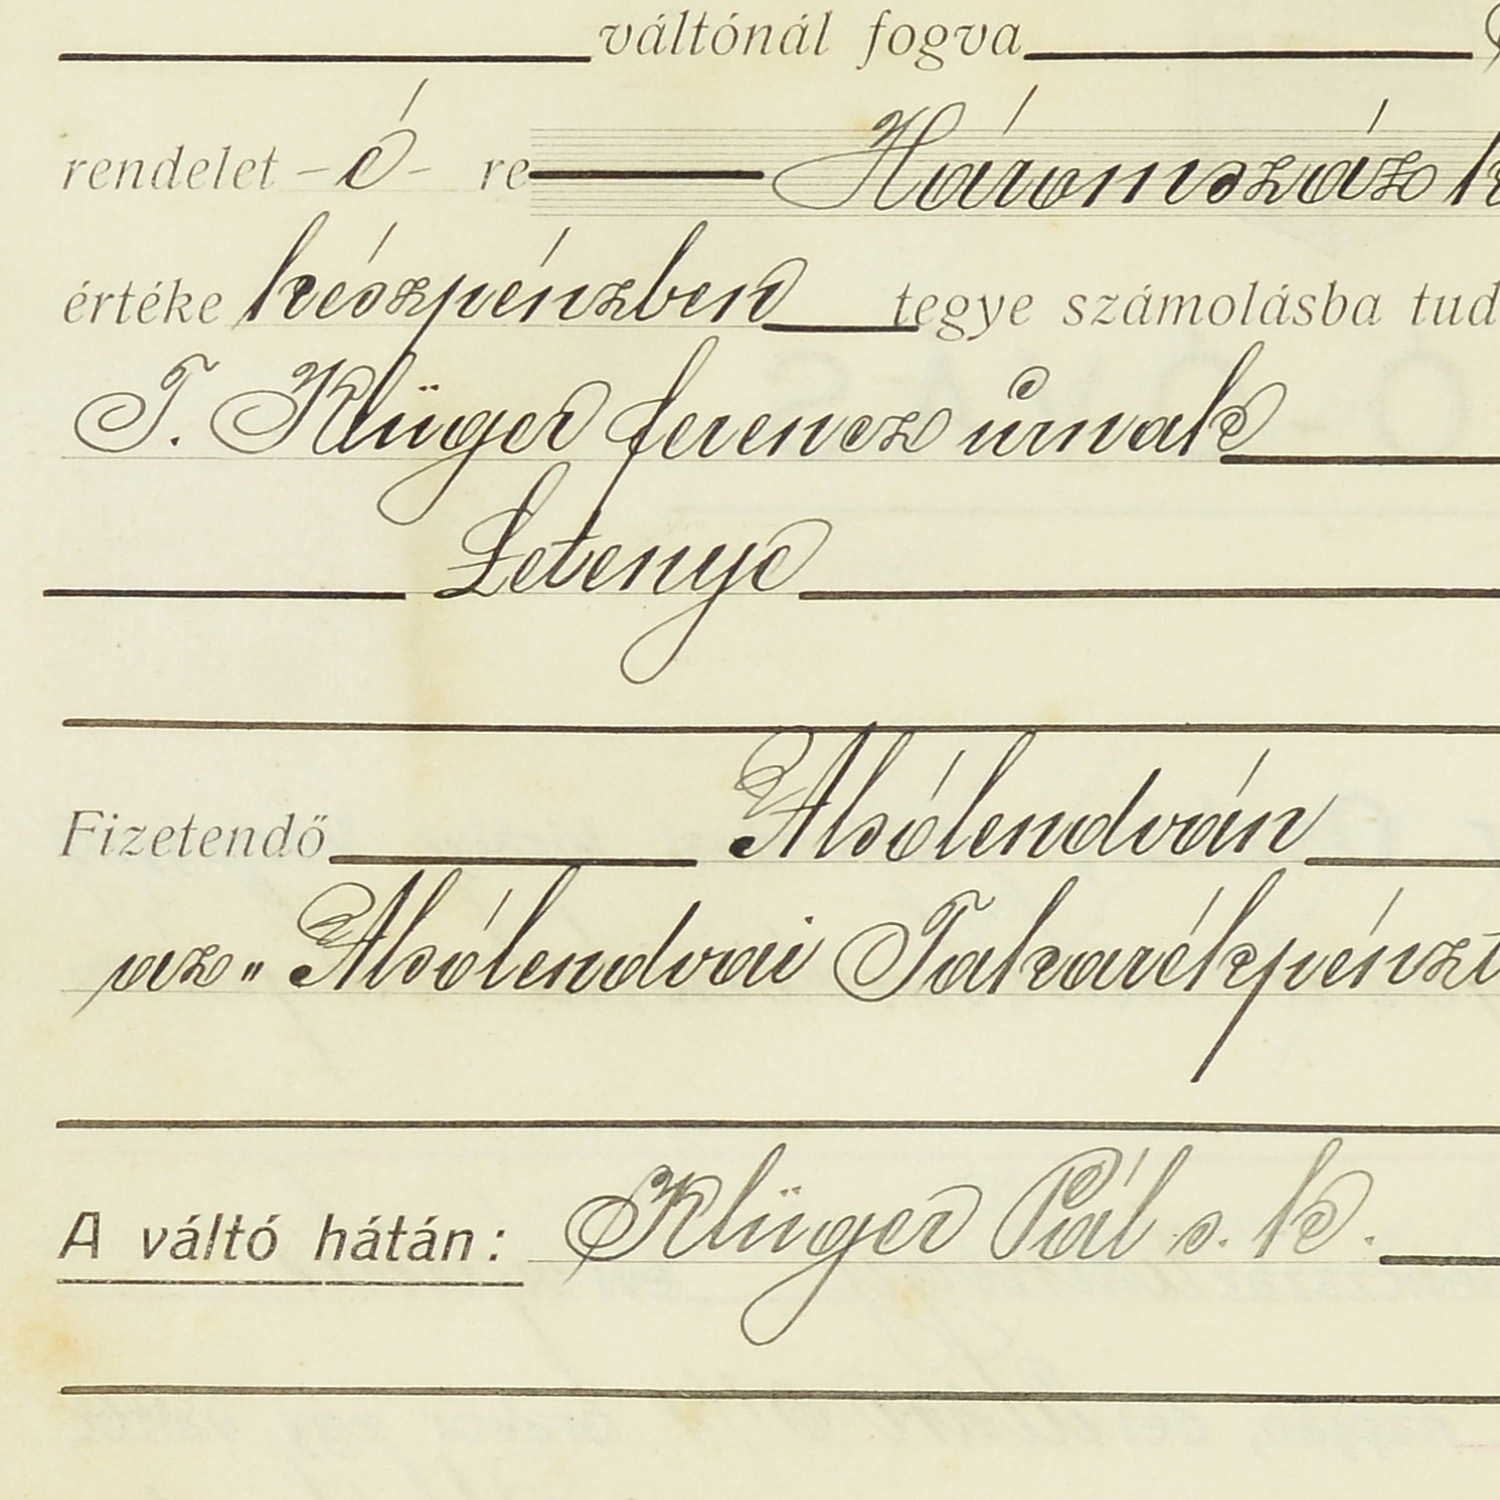 váltónál fogva
rendelet -é- re Háromszáz
értéke készpénzben tegye számolásba tud
T. Klüger ferencz úrnak
Letenye
Fizetendő Alsólendván
az „ Alsólendvai Takarékpénzt
A váltó hátán: Klüger Pál s. k.